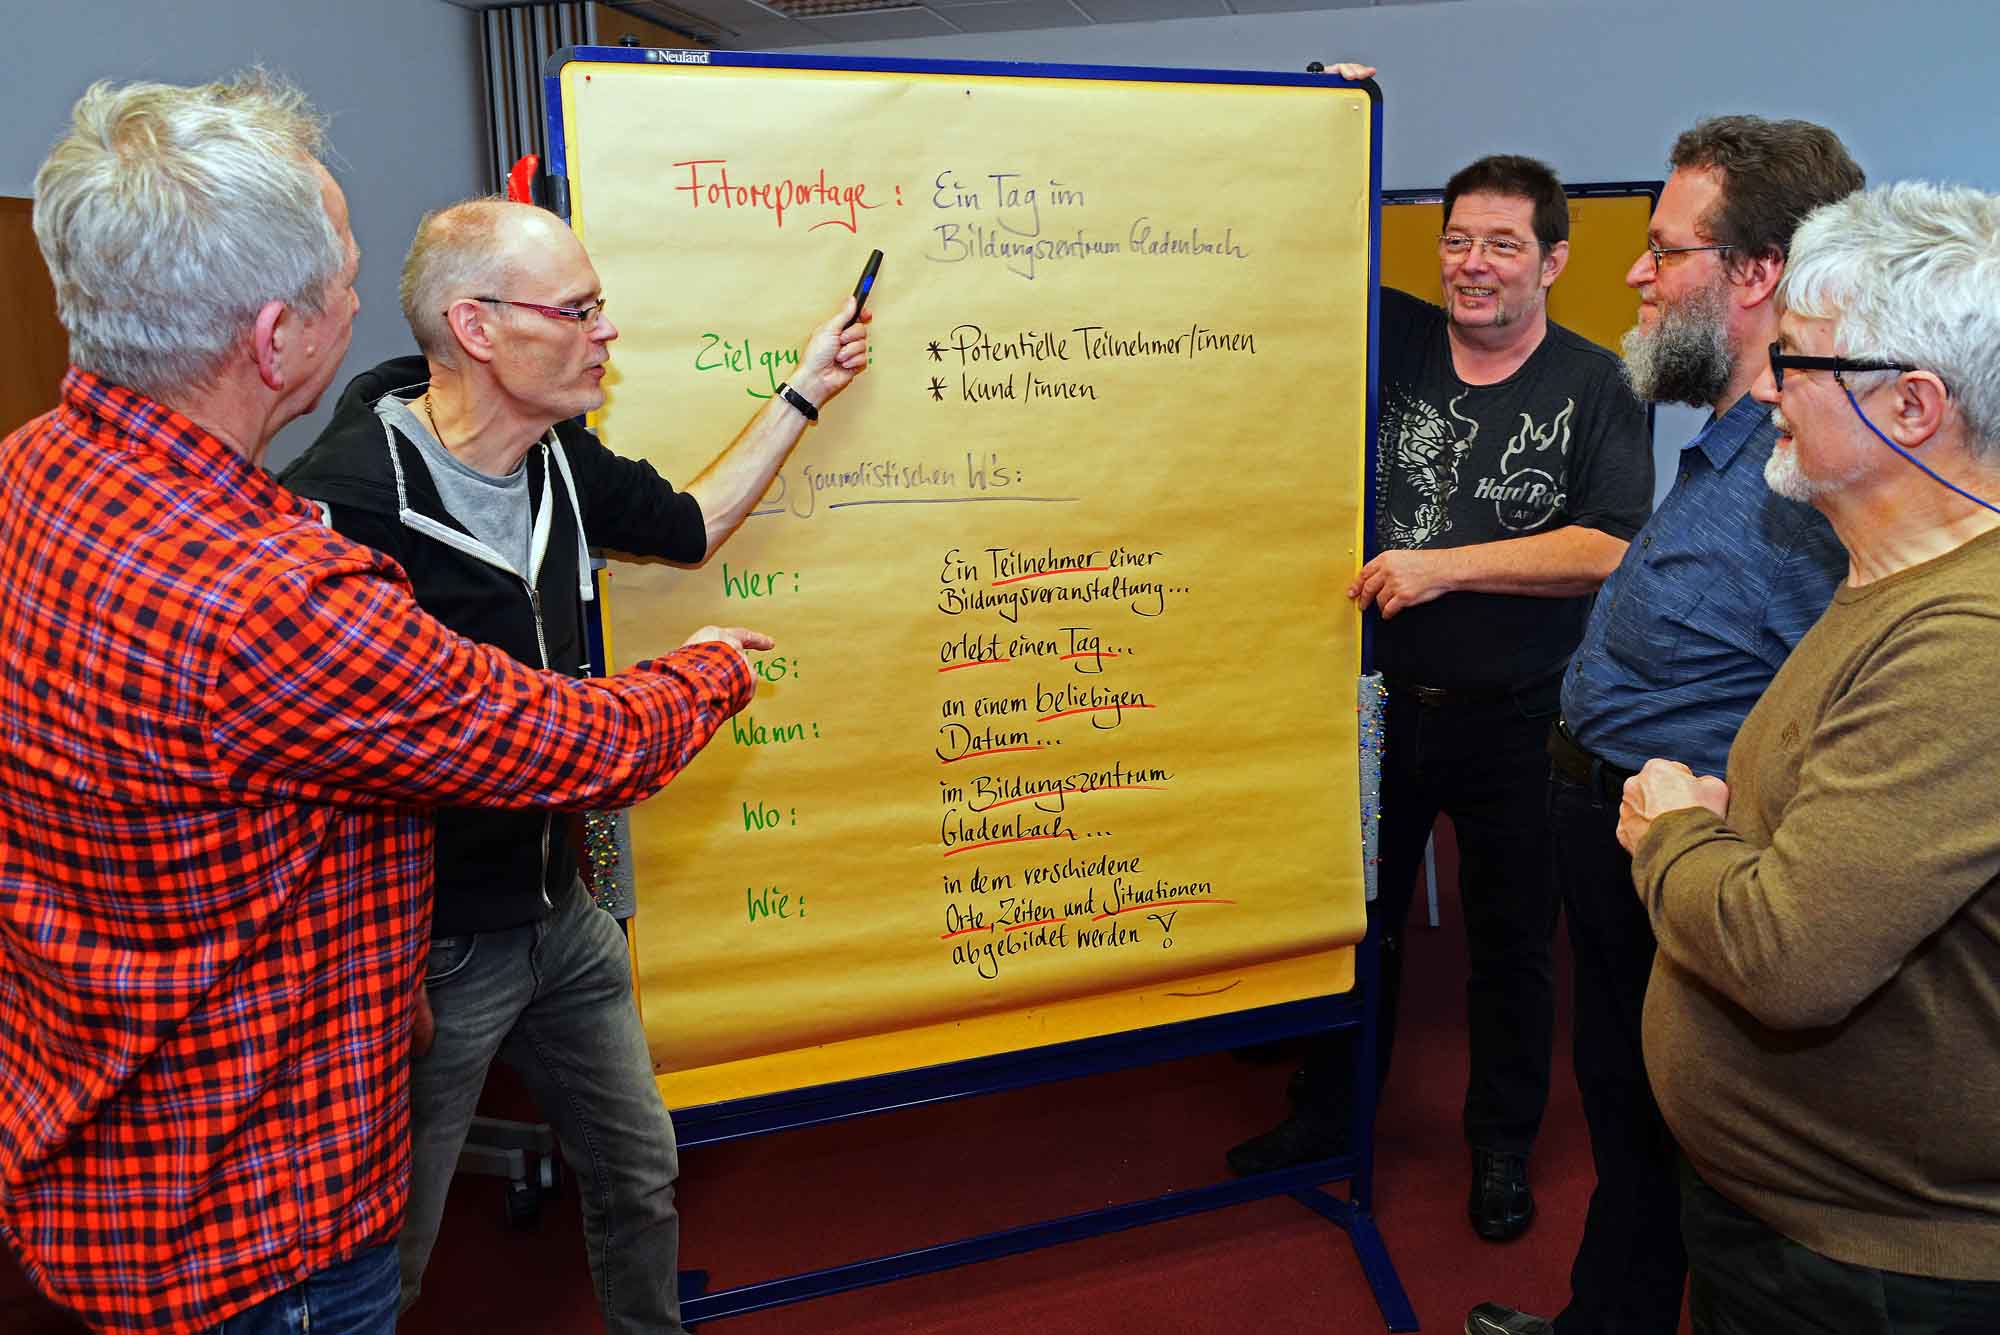 Neuland
Fotoreportage: Ein Tag im
Bildungszentrum Gladenbach
Zielgru : * Potentielle Teilnehmer/innen
* Kund/innen
journalistischen W's:
Wer: Ein Teilnehmer einer
Bildungsveranstaltung...
as: erlebt einen Tag...
Wann: an einem beliebigen
Datum...
Wo: im Bildungszentrum
Gladenbach...
Wie: in dem verschiedene
Orte, Zeiten und Situationen
abgebildet werden!
Hard Roc